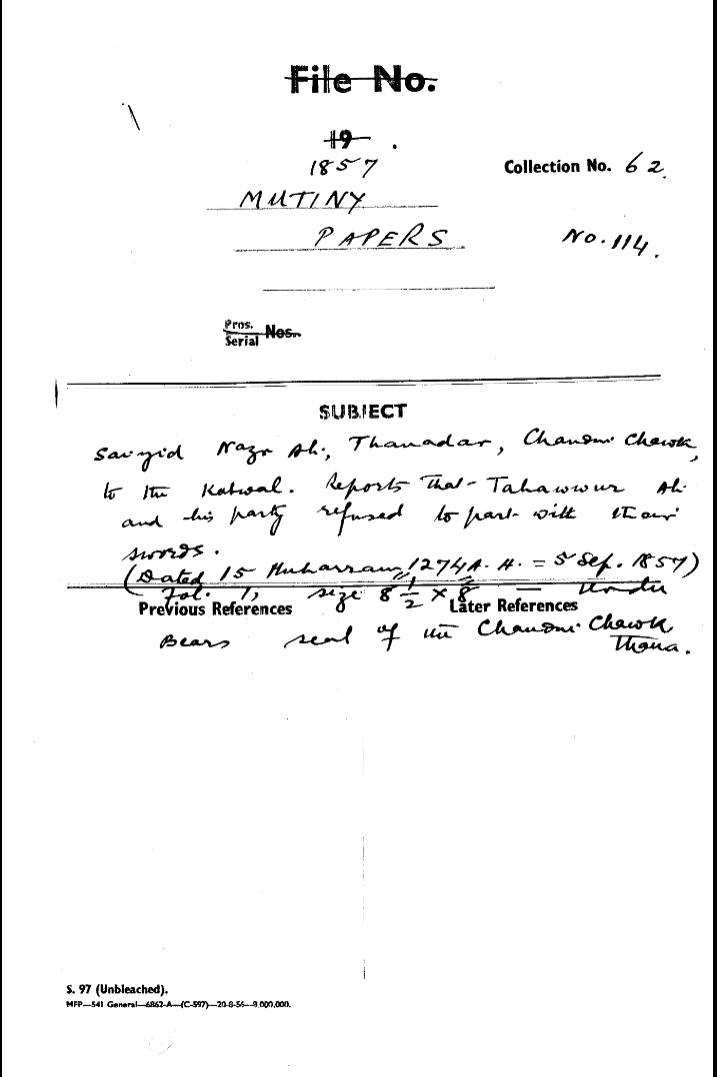 File No.
19 .
1857
Collection No. 62.
MUTINY
PAPERS
No. 114.
Pros.
Serial Nos.
SUBJECT
Saiyid Nazr Ali, Thanadar, Chandni Chawk,
to the Kotwal. Reports that Tahawwur Ali
and his party refused to part with their
swords.
(Dated 15 Muharram, 1274 A. H. = 5 Sep. 1857)
Fol. 1, size 8 1/2 x 8 — Urdu
Previous References Later References
Bears seal of the Chandni Chawk
Thana.
S. 97 (Unbleached).
MFP—541 General—6862-A—(C-597)—20-8-56—9,000,000.